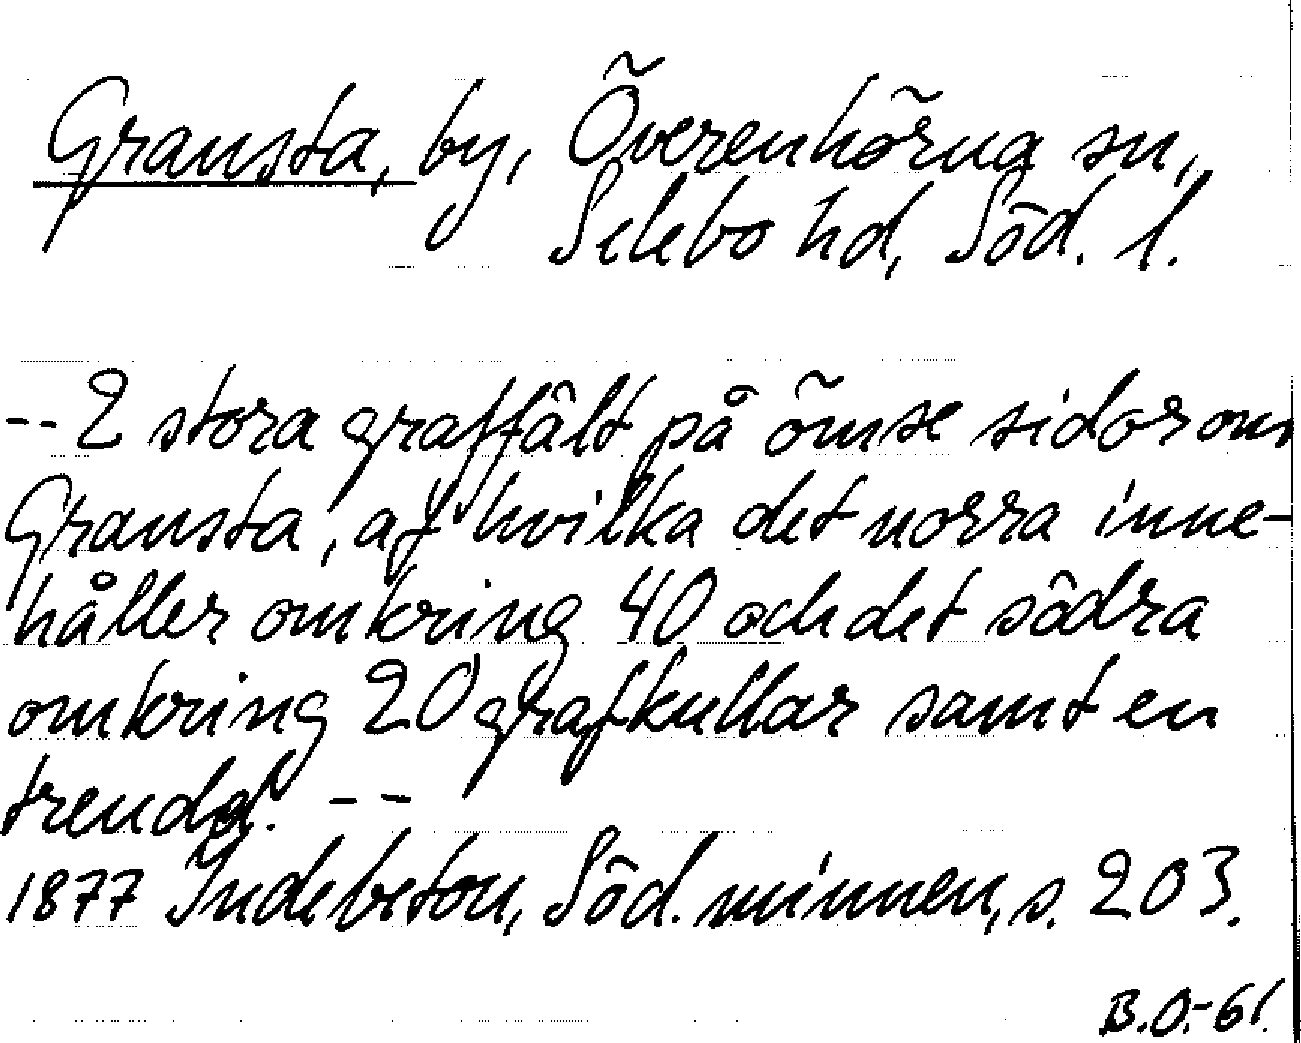 Gransta, by, Överenhörna sn,
Selebo hd, Söd. l.
-- 2 stora graffält på ömse sidor om
Gransta, af hvilka det norra inne-
håller omkring 40 och det södra
omkring 20 grafkullar samt en
treudd. --
1877 Indebetou, Söd. minnen, s. 203.
B.O.-61.